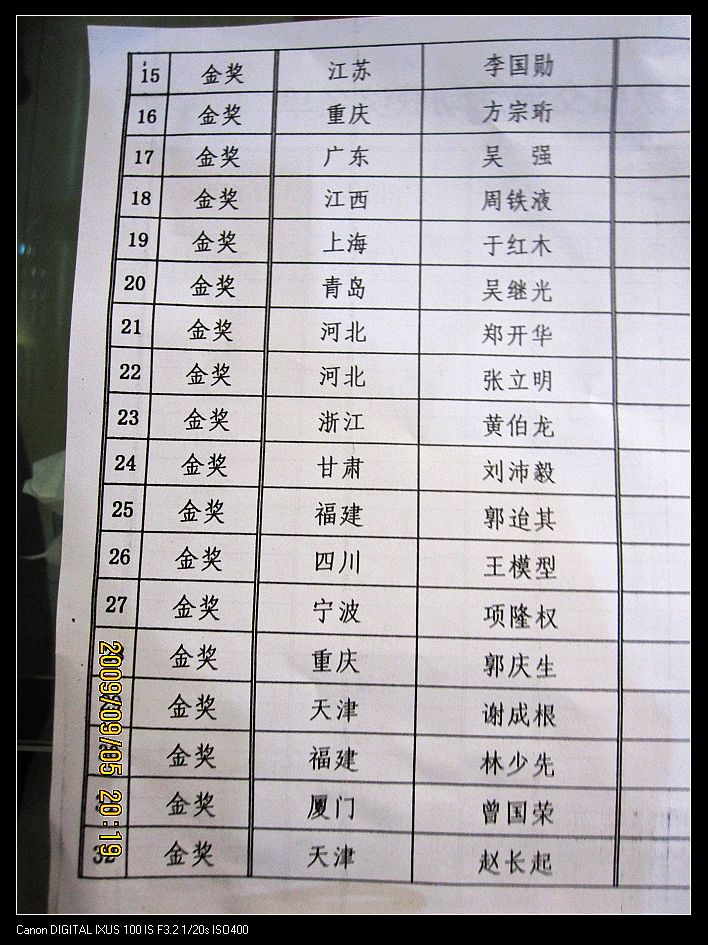 15 金奖 江苏 李国勋
16 金奖 重庆 方宗珩
17 金奖 广东 吴 强
18 金奖 江西 周铁液
19 金奖 上海 于红木
20 金奖 青岛 吴继光
21 金奖 河北 郑开华
22 金奖 河北 张立明
23 金奖 浙江 黄伯龙
24 金奖 甘肃 刘沛毅
25 金奖 福建 郭迨其
26 金奖 四川 王模型
27 金奖 宁波 项隆权
金奖 重庆 郭庆生
金奖 天津 谢成根
金奖 福建 林少先
金奖 厦门 曾国荣
32 金奖 天津 赵长起
2009/09/05 20:19
Canon DIGITAL IXUS 100 IS F3.2 1/20s ISO400